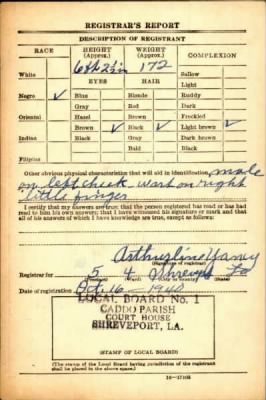 REGISTRAR'S REPORT
DESCRIPTION OF REGISTRANT
RACE HEIGHT (Approx.) WEIGHT (Approx.) COMPLEXION
6 ft 2½ in 172
White EYES HAIR Sallow
Light
Negro ✓ Blue Blonde Ruddy
Gray Red Dark
Oriental Hazel Brown Freckled
Brown ✓ Black ✓ Light brown ✓
Indian Black Gray Dark brown
Bald Black
Filipino
Other obvious physical characteristics that will aid in identification mole
on left cheek - wart on right
little finger
I certify that my answers are true; that the person registered has read or has
had read to him his own answers; that I have witnessed his signature or mark and that
all of his answers of which I have knowledge are true, except as follows:
Registrar for 5 4 Shreveport La
Date of registration Oct. 16 - 1940
LOCAL BOARD No. 1
CADDO PARISH
COURT HOUSE
SHREVEPORT, LA.
(STAMP OF LOCAL BOARD)
(The stamp of the Local Board having jurisdiction of the registrant
shall be placed in the above space.)